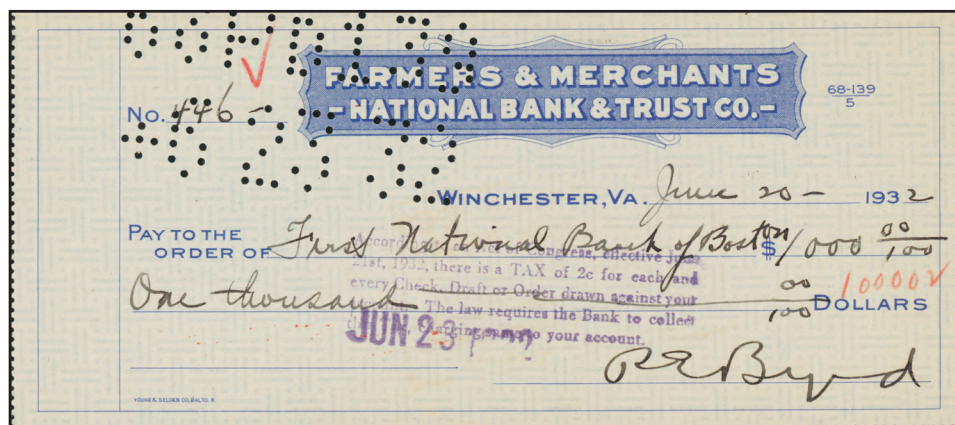 FARMERS & MERCHANTS
- NATIONAL BANK & TRUST CO. -
68-139
5
No. 446 -
WINCHESTER, VA. June 20 - 1932
PAY TO THE
ORDER OF First National Bank of Boston $ 1000 00/100
According to act of Congress, effective June
21st, 1932, there is a TAX of 2c for each and
every Check, Draft or Order drawn against your
The law requires the Bank to collect
to your account.
One thousand 00/100 DOLLARS
JUN 23
R E Byrd
YOUNG & SELDEN CO. BALTO.